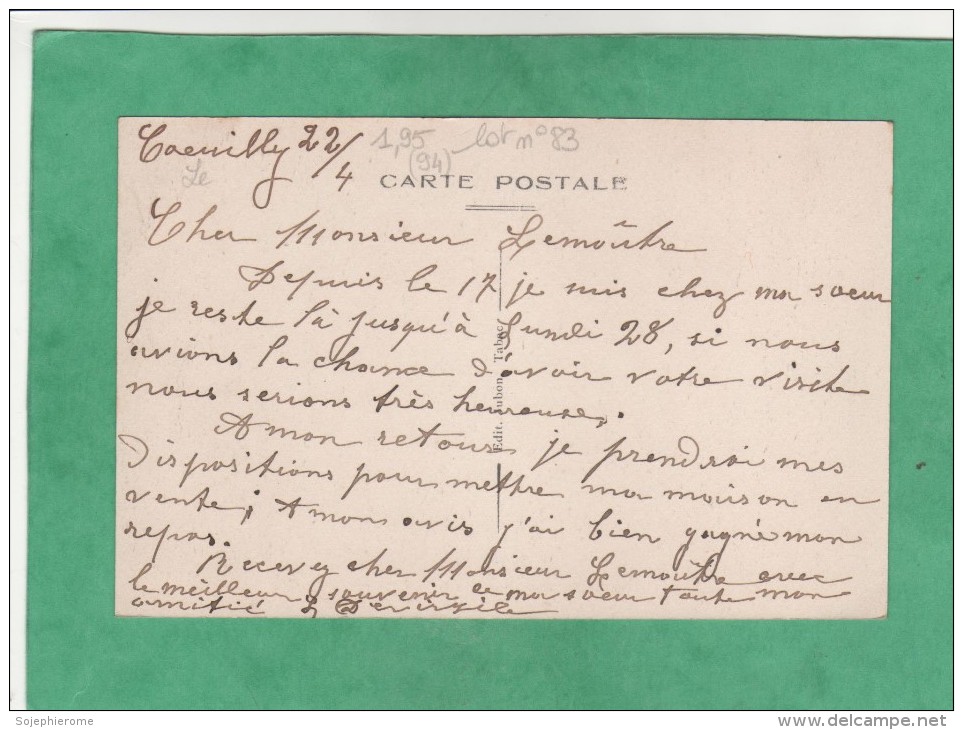 Coeuilly 22/4
1,95 lot n° 83
(94)
Le
CARTE POSTALE
Cher Monsieur Lemoûtre
Depuis le 17 je suis chez ma soeur
je reste là jusqu'à Lundi 28, si nous
avions la chance d'avoir votre visite
nous serions très heureuse.
A mon retour je prendrai mes
Dispositions pour mettre ma maison en
vente; A mon avis j'ai bien gagné mon
repos.
Recevez cher Monsieur Lemoûtre avec
le meilleur souvenir de ma soeur toute mon
amitié
Edit. Aubon, Tabac
Sojephierome
delcampe.net